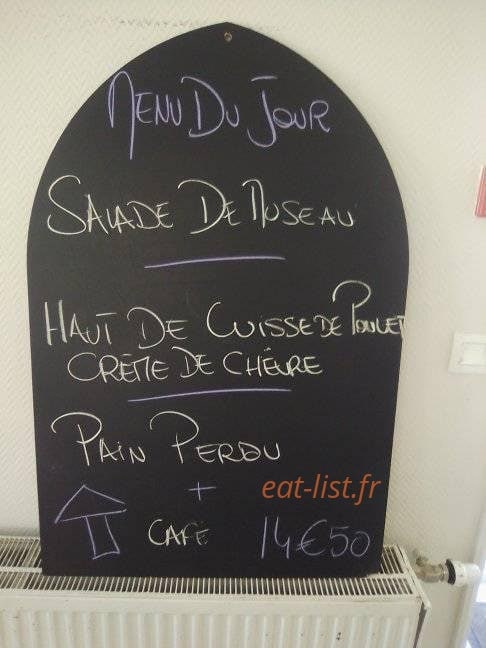 MENU DU JOUR
SALADE DE MUSEAU
HAUT DE CUISSE DE POULET
CRÈME DE CHÈVRE
PAIN PERDU
+
eat-list.fr
CAFÉ 14€50